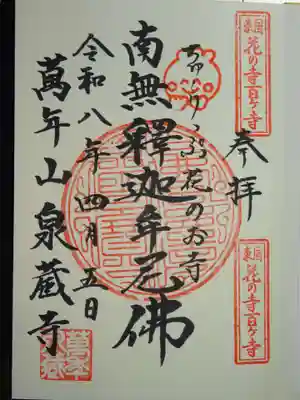 東国花の寺百ヶ寺
奉拝
東国花の寺百ヶ寺
花のお寺
南無釋迦牟尼佛
令和八年四月五日
萬年山泉蔵寺